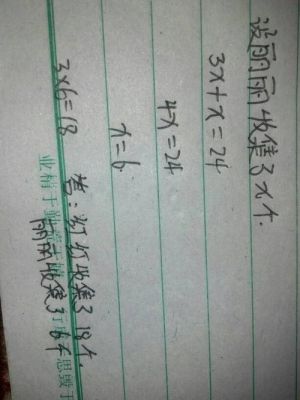 设丽丽收集了x个.
3x+x=24
4x=24
x=6
3×6=18
答:灯灯收集了18个,
丽丽收集了6个